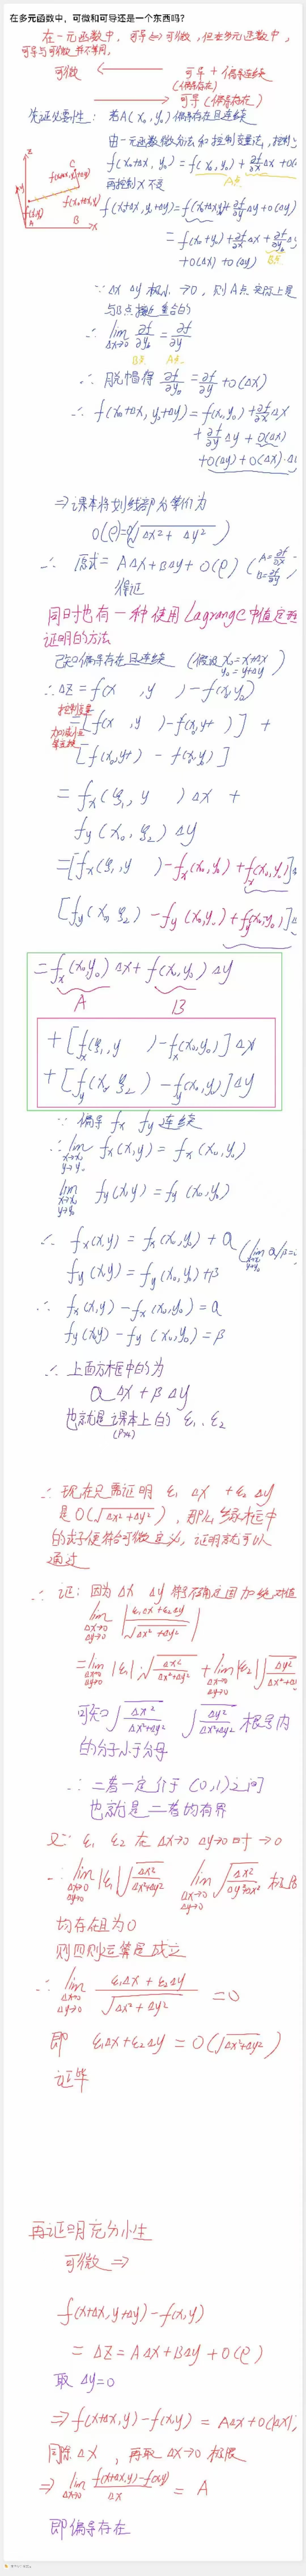 在多元函数中，可微和可导还是一个东西吗？
在一元函数中，可导⇔可微，但在多元函数中，
可导与可微并不等同，
可微 ← 可导 + 偏导连续
(偏导存在)
→ 可导 (偏导存在)
先证必要性： 若A(x₀, y₀) 偏导存在且连续
由一元函数微分法和控制变量法，控制y
f(x₀+Δx, y₀) = f(x₀, y₀) + ∂f/∂x Δx + o(
A点
再控制 x 不变
f(x₀+Δx, y₀+Δy) = f(x₀+Δx, y₀) + ∂f/∂y Δy + o(Δy)
= f(x₀, y₀) + ∂f/∂x Δx + ∂f/∂y Δy
+ o(Δx) + o(Δy) B点
∵ Δx Δy 极小 → 0， 则A点实际上是
与B点接近重合的
∴ lim Δx→0 ∂f/∂y₀ = ∂f/∂y
B点 A点
∴ 脱帽得 ∂f/∂y₀ = ∂f/∂y + o(Δx)
∴ f(x₀+Δx, y₀+Δy) = f(x₀, y₀) + ∂f/∂x Δx
+ ∂f/∂y Δy + o(Δx)
+ o(Δy) + o(Δx)·Δ
⇒ 课本将划线部分等价为
o(ρ) = o(√Δx² + Δy²)
∴ 原式 = AΔx + BΔy + o(ρ) (A = ∂f/∂x B = ∂f/∂y
得证
同时也有一种使用Lagrange中值定理
证明的方法
已知偏导存在且连续 (假设 x₀ = x+Δx y₀ = y+Δy)
∴ ΔZ = f(x , y ) − f(x₀, y₀)
= [f(x , y ) − f(x₀, y )] +
[f(x₀, y ) − f(x₀, y₀)]
= fx(ξ₁, y )Δx +
fy(x₀, ξ₂)Δy
= [fx(ξ₁, y ) − fx(x₀, y₀) + fx(x₀, y₀)]
[fy(x₀, ξ₂) − fy(x₀, y₀) + fy(x₀, y₀)]
= fx(x₀, y₀)Δx + fy(x₀, y₀)Δy
A B
+ [fx(ξ₁, y ) − fx(x₀, y₀)]Δx
+ [fy(x₀, ξ₂) − fy(x₀, y₀)]Δy
∵ 偏导 fx fy 连续
∴ lim x→x₀ y→y₀ fx(x, y) = fx(x₀, y₀)
lim x→x₀ y→y₀ fy(x, y) = fy(x₀, y₀)
∴ fx(x, y) = fx(x₀, y₀) + α
fy(x, y) = fy(x₀, y₀) + β (lim x→x₀ y→y₀ α/β =
∴ fx(x, y) − fx(x₀, y₀) = α
fy(x, y) − fy(x₀, y₀) = β
∴ 上面方框中的为
αΔx + βΔy
也就是课本上的 ε₁、ε₂
∴ 现在只需证明 ε₁Δx + ε₂Δy
是 o(√Δx² + Δy²)，那么绿框中
的式子便符合可微定义，证明就可以
通过
∴ 证：因为 Δx Δy 符号不确定因加绝对值
lim Δx→0 Δy→0 |ε₁Δx + ε₂Δy / √Δx² + Δy²|
= lim Δx→0 Δy→0 |ε₁|·√Δx²/Δx²+Δy² + lim Δx→0 Δy→0 |ε₂|√Δy²/Δx²+Δ
可知 √Δx²/Δx²+Δy² √Δy²/Δx²+Δy² 根号内
的分子小于分母
∴ 二者一定介于 (0,1) 之间
也就是二者均有界
又∵ ε₁ ε₂ 在 Δx→0 Δy→0 时 → 0
∴ lim Δx→0 Δy→0 |ε₁|√Δx²/Δx²+Δy² lim Δx→0 Δy→0 √Δx²/Δy²+Δx² 极限
均存在且为0
则四则运算是成立
∴ lim Δx→0 Δy→0 ε₁Δx + ε₂Δy / √Δx² + Δy² = 0
即 ε₁Δx + ε₂Δy = o(√Δx²+Δy²)
证毕
再证明充分性
可微 ⇒
f(x+Δx, y+Δy) − f(x, y)
= ΔZ = AΔx + BΔy + o(ρ)
取 Δy = 0
⇒ f(x+Δx, y) − f(x, y) = AΔx + o(|Δx|)
同除 Δx ，再取 Δx→0 极限
⇒ lim Δx→0 f(x+Δx, y) − f(x, y) / Δx = A
即偏导存在